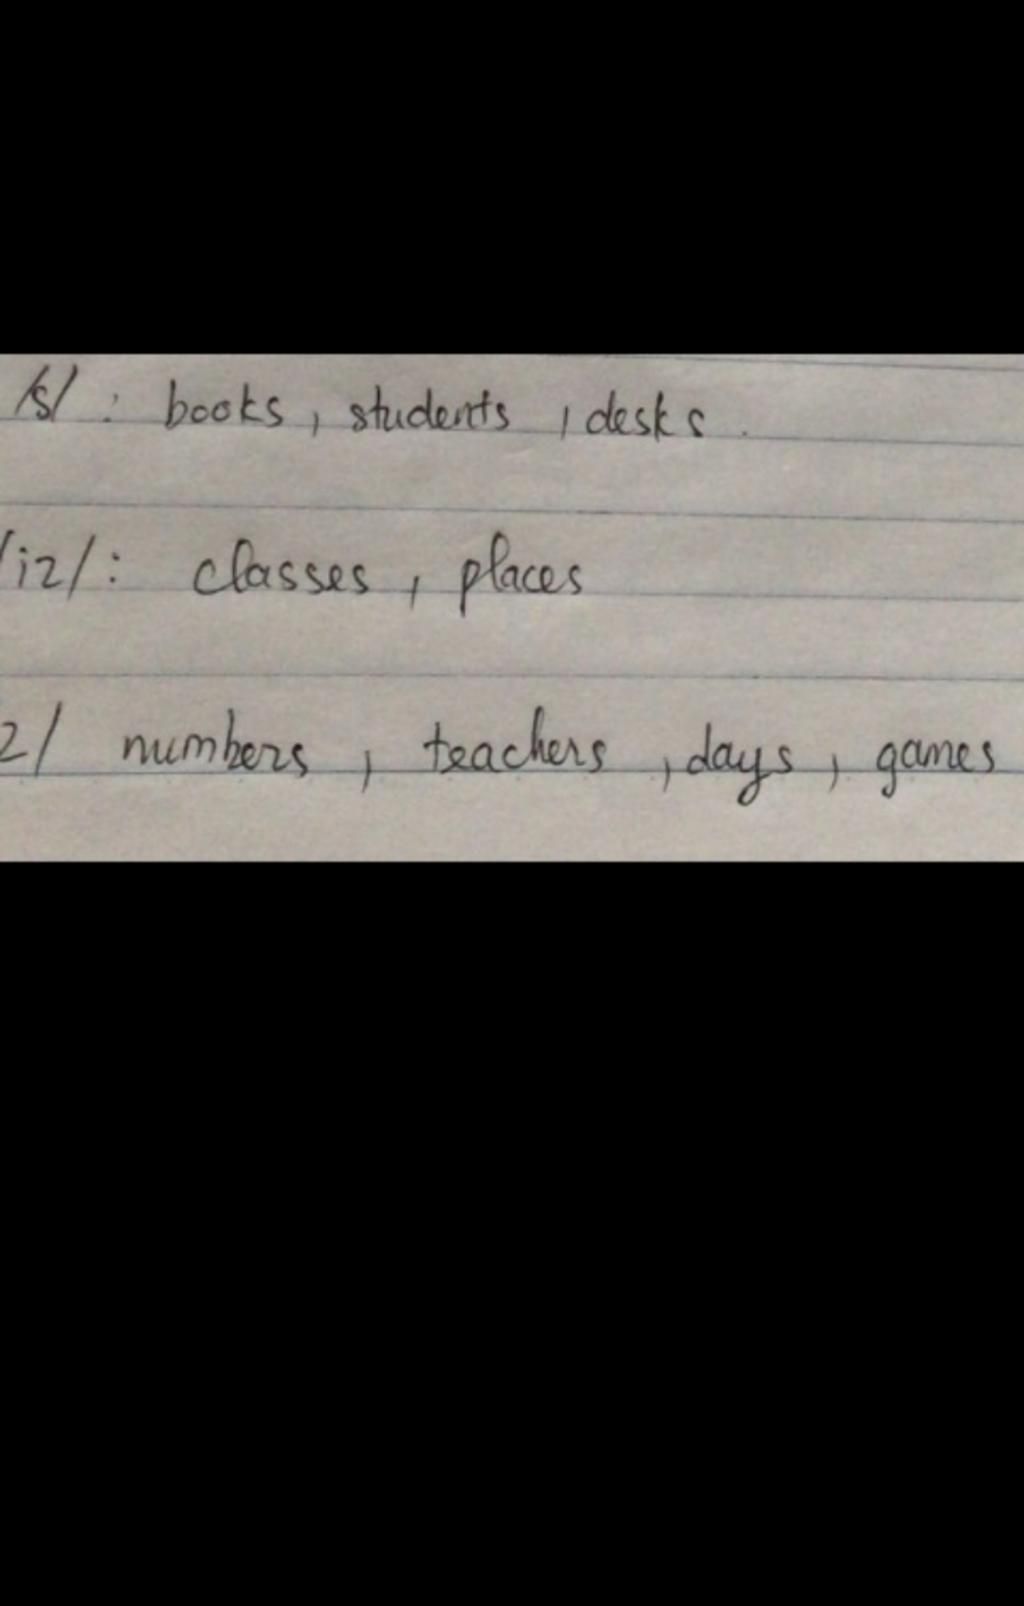 /s/ : books, students, desks.
/iz/: classes, places
z/ numbers, teachers, days, games